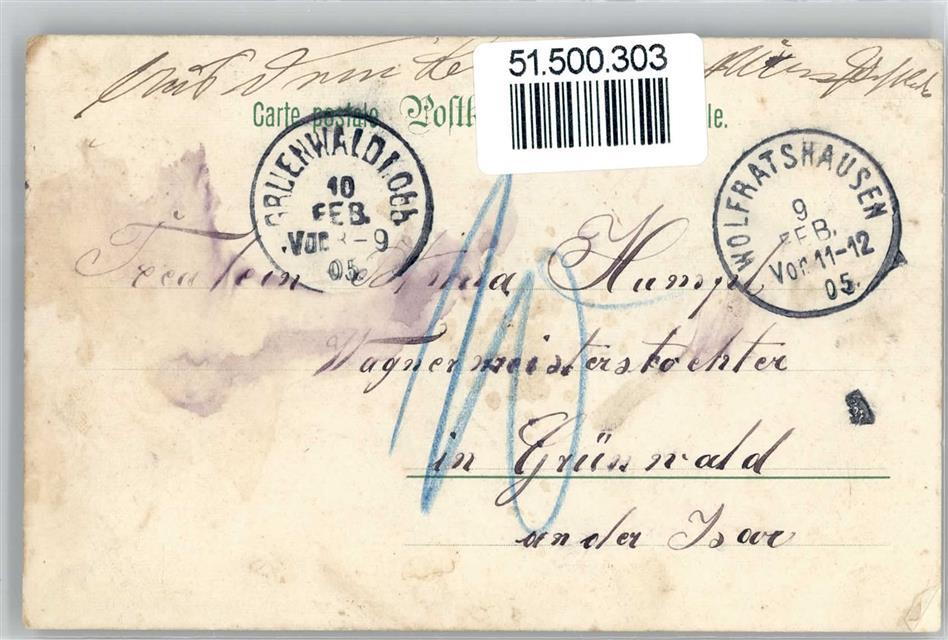 51.500.303
Carte postale Postk le.
GRUENWALD I. Obb
10
FEB.
Vor. 8-9
05.
WOLFRATSHAUSEN
9
FEB.
Vor. 11-12
05.
Fräulein Kumpf
Wagnermeisterstochter
in Grünwald
an der Isar
10